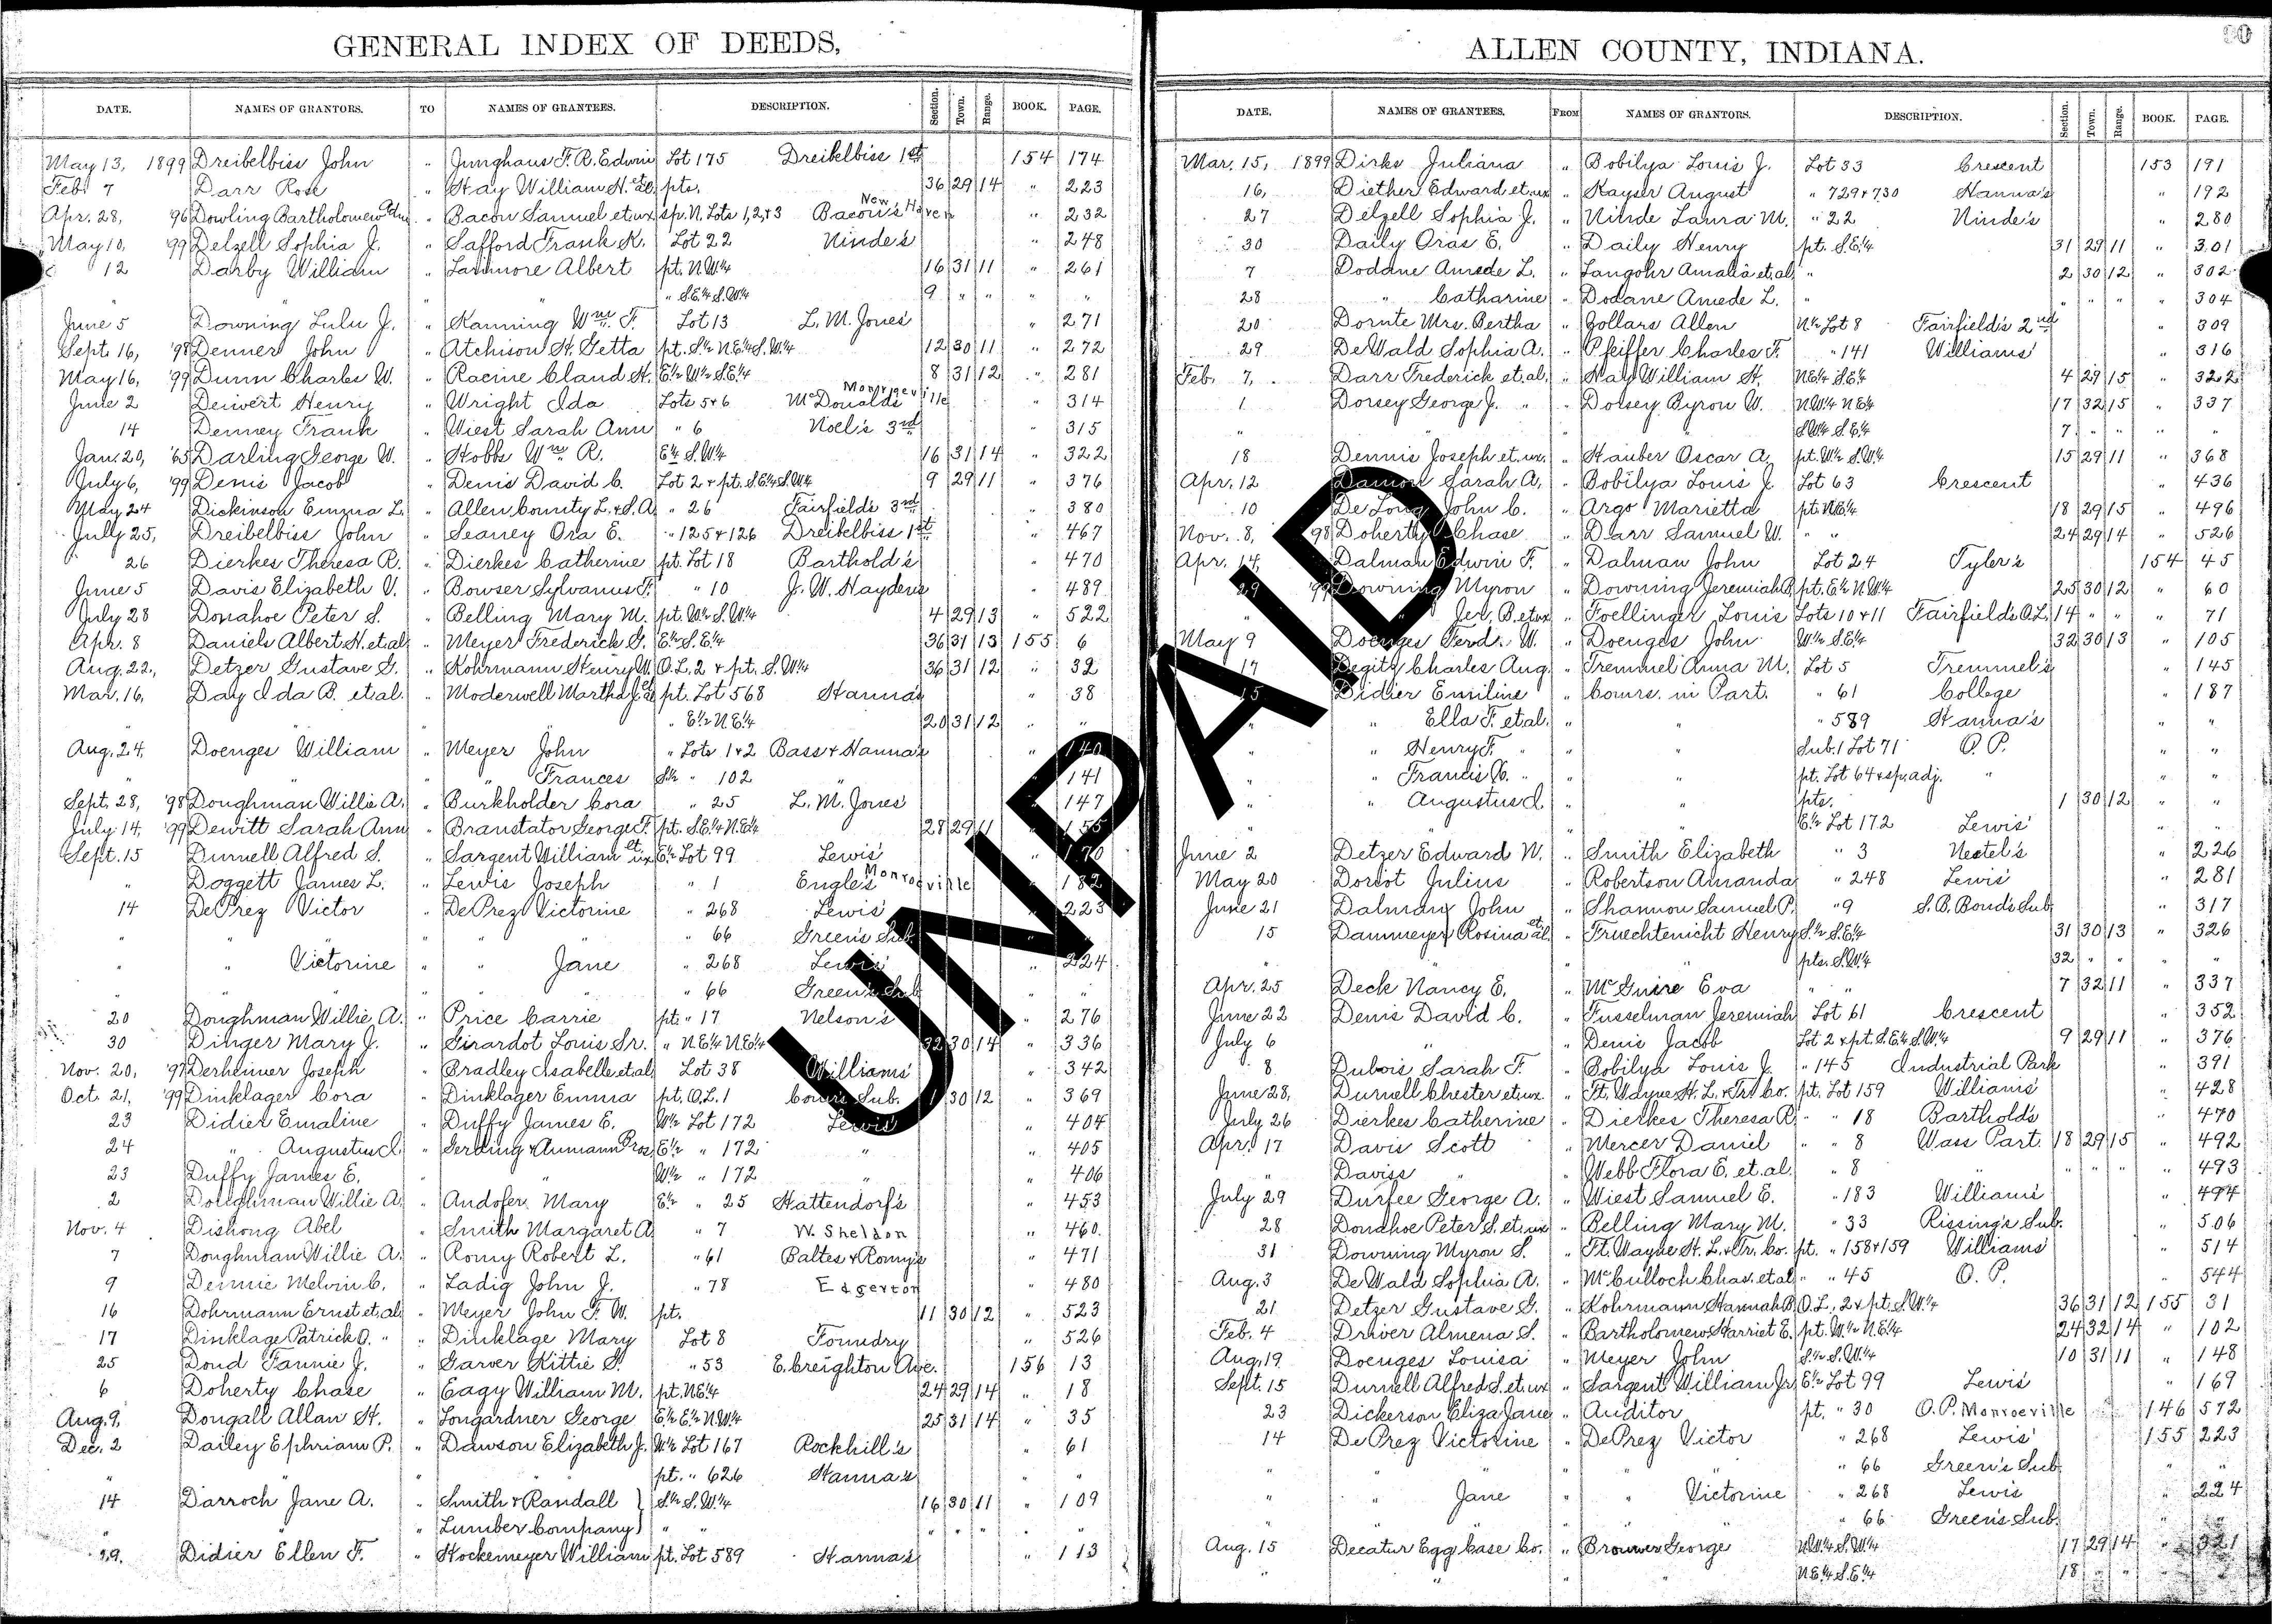 GENERAL INDEX OF DEEDS,
DATE. NAMES OF GRANTORS. TO NAMES OF GRANTEES. DESCRIPTION. Section. Town. Range. BOOK. PAGE.
May 13, 1899 Dreibelbiss John " Junghaus F. R. Edwin Lot 175 Dreibelbiss 1st 154 174
Feb. 7 Darr Rose " Hay William H. et al. pts. 36 29 14 " 223
Apr. 28, '96 Dowling Bartholomew Edw. " Bacon Samuel et ux sp. N. Lots 1, 2, +3 Bacon's New Haven " 232
May 10, '99 Delzell Sophia J. " Safford Frank K. Lot 22 Ninde's " 248
" 12 Darby William " Larimore Albert pt. N.W.¼ 16 31 11 " 261
" " " " S.E.¼ S.W.¼ 9 " " " "
June 5 Downing Lulu J. " Kanning Wm. F. Lot 13 L. M. Jones' " 271
Sept. 16, '98 Denner John " Atchison H. Getta pt. S.½ N.E.¼ S.W.¼ 12 30 11 " 272
May 16, '99 Dunn Charles W. " Racine Claud H. E.½ W.½ S.E.¼ 8 31 12 " 281
June 2 Deivert Henry " Wright Ida Lots 5+6 McDonald's Monroeville " 314
14 Denney Frank " Wiest Sarah Ann " 6 Noel's 3rd " 315
Jan. 20, '65 Darling George W. " Hobbs Wm. R. E.½ S.W.¼ 16 31 14 " 322
July 6, '99 Denis Jacob " Denis David C. Lot 2 + pt. S.E.¼ S.W.¼ 9 29 11 " 376
May 24 Dickinson Emma L. " Allen County L. + S. A. " 26 Fairfield's 3rd " 380
July 25, Dreibelbiss John " Seaney Ora E. " 125+126 Dreibelbiss 1st " 467
26 Dierkes Theresa R. " Dierkes Catherine pt. Lot 18 Barthold's " 470
June 5 Davis Elizabeth V. " Bowser Sylvanus F. " 10 J. W. Hayden's " 489
July 28 Donahoe Peter S. " Belling Mary M. pt. W.½ S.W.¼ 4 29 13 " 522
Apr. 8 Daniels Albert H. et al. " Meyer Frederick G. E.½ S.E.¼ 36 31 13 155 6
Aug. 22, Detzer Gustave G. " Kohrmann Henry W. O.L. 2 + pt. S.W.¼ 36 31 12 " 32
Mar. 16, Day Ida B. et al. " Moderwell Martha J. et al pt. Lot 568 Hanna's " 38
" " " " E.½ N.E.¼ 20 31 12 " "
Aug. 24, Doenges William " Meyer John " Lots 1+2 Bass + Hanna's " 140
" " " " Frances S.½ " 102 " " 141
Sept. 28, '98 Doughman Willie A. " Burkholder Cora " 25 L. M. Jones' " 147
July 14, '99 Dewitt Sarah Ann " Branstator George F. pt. S.E.¼ N.E.¼ 28 29 11 " 155
Sept. 15 Durnell Alfred S. " Sargent William et ux E.½ Lot 99 Lewis' " 170
" Doggett James L. " Lewis Joseph " 1 Engle's Monroeville " 182
14 DePrez Victor " DePrez Victorine " 268 Lewis' " 223
" " " " " 66 Green's Sub. " "
" " Victorine " " Jane " 268 Lewis' " 224
" " " " 66 Green's Sub. " "
20 Doughman Willie A. " Price Carrie pt. " 17 Nelson's " 276
30 Dinger Mary J. " Girardot Louis Sr. " N.E.¼ N.E.¼ 32 30 14 " 336
Nov. 20, '97 Derheimer Joseph " Bradley Isabelle et al Lot 38 Williams' " 342
Oct. 21, '99 Dinklager Cora " Dinklager Emma pt. O.L. 1 Cour's Sub. 1 30 12 " 369
23 Didier Emaline " Duffy James E. W.½ Lot 172 Lewis' " 404
24 " Augustus J. " Gerding + Aumann Bros. E.½ " 172 " " 405
23 Duffy James E. " " W.½ " 172 " 406
2 Doughman Willie A. " Andofer Mary E.½ " 25 Hattendorf's " 453
Nov. 4 Dishong Abel " Smith Margaret A. " 7 W. Sheldon " 460
7 Doughman Willie A. " Romy Robert L. " 61 Baltes + Romy's " 471
9 Dennie Melvin C. " Ladig John J. " 78 Edgerton " 480
16 Dohrmann Ernst et al. " Meyer John F. W. pt. 11 30 12 " 523
17 Dinklage Patrick O. " " Dinklage Mary Lot 8 Foundry " 526
25 Doud Fannie J. " Garver Kittie S. " 53 E. Creighton Ave. 156 13
6 Doherty Chase " Eagy William M. pt. N.E.¼ 24 29 14 " 18
Aug. 9, Dougall Allan H. " Longardner George E.½ E.½ N.W.¼ 25 31 14 " 35
Dec. 2 Dailey Ephriam P. " Dawson Elizabeth J. W.½ Lot 167 Rockhill's " 61
" " " " pt. " 626 Hanna's " "
14 Darroch Jane A. " Smith + Randall } S.½ S.W.¼ 16 30 11 " 109
" " Lumber Company } " " " " " " "
29. Didier Ellen F. " Hockemeyer William pt. Lot 589 Hanna's " 113
ALLEN COUNTY, INDIANA.
DATE. NAMES OF GRANTEES. FROM NAMES OF GRANTORS. DESCRIPTION. Section. Town. Range. BOOK. PAGE.
Mar. 15, 1899 Dirks Juliana " Bobilya Louis J. Lot 33 Crescent 153 191
16, Diether Edward et ux " Kayser August " 729+730 Hanna's " 192
27 Delzell Sophia J. " Ninde Laura M. " 22 Ninde's " 280
30 Daily Oras E. " Daily Henry pt. S.E.¼ 31 29 11 " 301
7 Dodane Amede L. " Langohr Amalia et al " 2 30 12 " 302
28 " Catharine " Dodane Amede L. " " " " " 304
20 Dornte Mrs. Bertha " Zollars Allen N.½ Lot 8 Fairfield's 2nd " 309
29 DeWald Sophia A. " Pfeiffer Charles F. " 141 Williams' " 316
Feb. 7, Darr Frederick et al. " Hay William H. N.E.¼ S.E.¼ 4 29 15 " 322
1 Dorsey George J. " " Dorsey Byron W. N.W.¼ N.E.¼ 17 32 15 " 337
" " " S.W.¼ S.E.¼ 7 " " " "
18 Dennis Joseph et ux. " Stauber Oscar A. pt. W.½ S.W.¼ 15 29 11 " 368
Apr. 12 Damon Sarah A. " Bobilya Louis J. Lot 63 Crescent " 436
10 DeLong John C. " Argo Marietta pt. N.E.¼ 18 29 15 " 496
Nov. 8, '98 Doherty Chase " Darr Samuel W. " " 24 29 14 " 526
Apr. 14, Dalman Edwin F. " Dalman John Lot 24 Tyler's 154 45
29 '99 Downing Myron " Downing Jeremiah B. pt. E.½ N.W.¼ 25 30 12 " 60
" " Jer. B. et ux " Foellinger Louis Lots 10+11 Fairfield's O.L. 14 " " " 71
May 9 Doenges Ferd. W. " Doenges John W.½ S.E.¼ 32 30 13 " 105
17 Degitz Charles Aug. " Tremmel Anna M. Lot 5 Tremmel's " 145
15 Didier Emiline " Comrs. in Part. " 61 College " 187
" " Ella F. et al. " " " 589 Hanna's " "
" " Henry F. " " " Sub. 1 Lot 71 O. P. " "
" " Francis C. " " " pt. Lot 64 + sp. adj. " " "
" " Augustus J. " " pts. 1 30 12 " "
" " " " E.½ Lot 172 Lewis' " "
June 2 Detzer Edward W. " Smith Elizabeth " 3 Nestel's " 226
May 20 Doriot Julius " Robertson Amanda " 248 Lewis' " 281
June 21 Dalman John " Shannon Samuel P. " 9 S. B. Bond's Sub. " 317
15 Dammeyer Rosina et al. " Fruechtenicht Henry S.½ S.E.¼ 31 30 13 " 326
" " " " pts. S.W.¼ 32 " " " "
Apr. 25 Deck Nancy E. " McGuire Eva " " 7 32 11 " 337
June 22 Denis David C. " Fusselman Jeremiah Lot 61 Crescent " 352
July 6 " " Denis Jacob Lot 2 + pt. S.E.¼ S.W.¼ 9 29 11 " 376
8 Dubois Sarah F. " Bobilya Louis J. " 145 Industrial Park " 391
June 28, Durnell Chester et ux. " Ft. Wayne H. L. + Tr. Co. pt. Lot 159 Williams' " 428
July 26 Dierkes Catherine " Dierkes Theresa R. " " 18 Barthold's " 470
Apr. 17 Davis Scott " Mercer Daniel " " 8 Wass Part. 18 29 15 " 492
" Daviss " " Webb Flora E. et al. " 8 " " " " " 493
July 29 Durfee George A. " Wiest Samuel E. " 183 Williams' " 494
28 Donahoe Peter S. et ux " Belling Mary M. " 33 Rissing's Sub. " 506
31 Downing Myron S. " Ft. Wayne H. L. + Tr. Co. pt. " 158+159 Williams' " 514
Aug. 3 DeWald Sophia A. " McCulloch Chas. et al " " 45 O. P. " 544
21 Detzer Gustave G. " Kohrmann Hannah B. O.L. 2 + pt. S.W.¼ 36 31 12 155 31
Feb. 4 Driver Almena S. " Bartholomew Harriet E. pt. W.½ N.E.¼ 24 32 14 " 102
Aug. 19 Doenges Louisa " Meyer John S.½ S.W.¼ 10 31 11 " 148
Sept. 15 Durnell Alfred S. et ux " Sargent William Jr. E.½ Lot 99 Lewis' " 169
23 Dickerson Eliza Jane " Auditor pt. " 30 O. P. Monroeville 146 572
14 DePrez Victorine " DePrez Victor " 268 Lewis' 155 223
" " " " " 66 Green's Sub. " "
" " Jane " " Victorine " 268 Lewis' " 224
" " " " " 66 Green's Sub. " "
Aug. 15 Decatur Egg Case Co. " Brouwer George N.W.¼ S.W.¼ 17 29 14 " 321
" " " " N.E.¼ S.E.¼ 18 " " " "
UNPAID